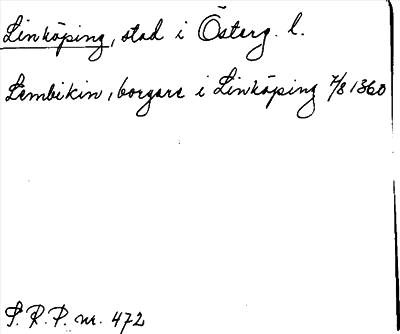 Linköping, stad i Österg. l.
Lembikin, borgare i Linköping 7/8 1360
S. R. P. nr. 472